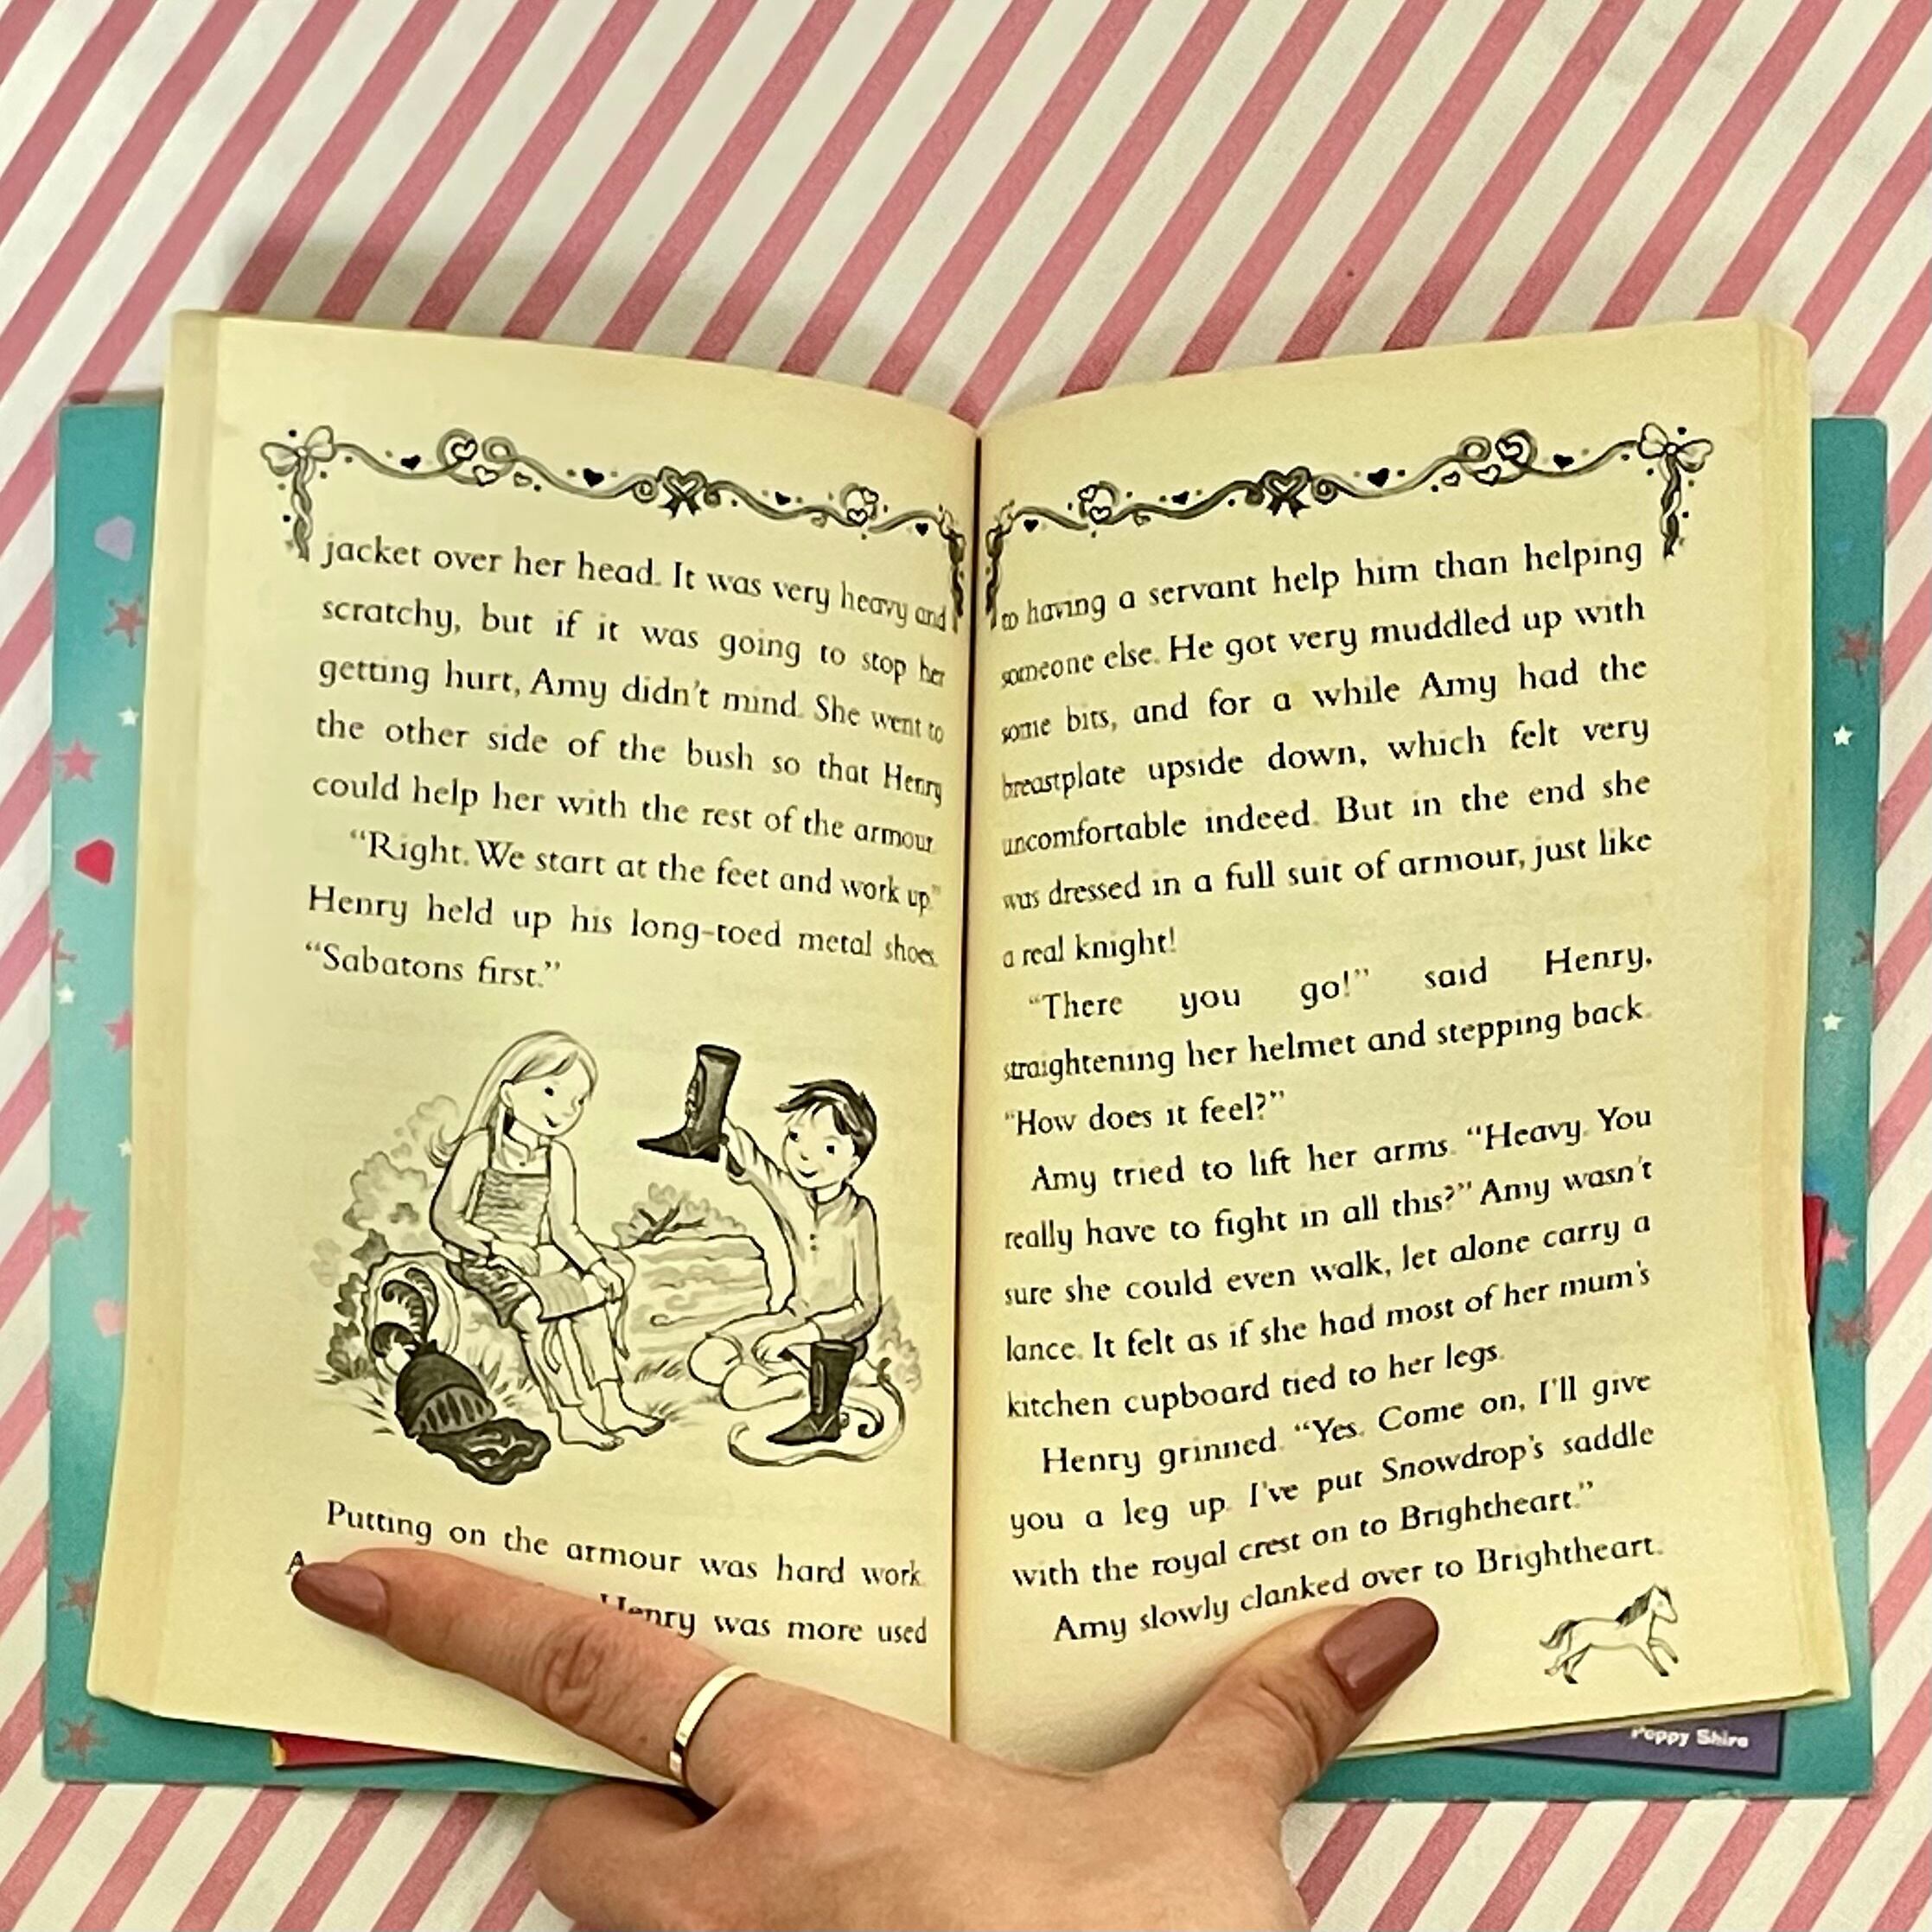 jacket over her head. It was very heavy and
scratchy, but if it was going to stop her
getting hurt, Amy didn't mind. She went to
the other side of the bush so that Henry
could help her with the rest of the armour.
“Right. We start at the feet and work up.”
Henry held up his long-toed metal shoes.
“Sabatons first.”
Putting on the armour was hard work.
Henry was more used
to having a servant help him than helping
someone else. He got very muddled up with
some bits, and for a while Amy had the
breastplate upside down, which felt very
uncomfortable indeed. But in the end she
was dressed in a full suit of armour, just like
a real knight!
“There you go!” said Henry,
straightening her helmet and stepping back.
“How does it feel?”
Amy tried to lift her arms. “Heavy. You
really have to fight in all this?” Amy wasn't
sure she could even walk, let alone carry a
lance. It felt as if she had most of her mum's
kitchen cupboard tied to her legs.
Henry grinned. “Yes. Come on, I'll give
you a leg up. I've put Snowdrop's saddle
with the royal crest on to Brightheart.”
Amy slowly clanked over to Brightheart.
Poppy Shire